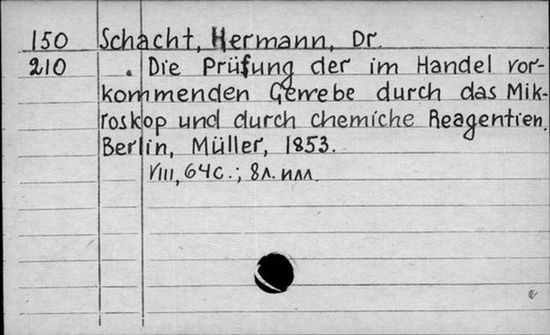 150 Schacht, Hermann, Dr.
210 . Die Prüfung der im Handel vor-
kommenden Gewebe durch das Mik-
roskop und durch chemiche Reagentien.
Berlin, Müller, 1853.
VIII, 64с.; 8л. илл.